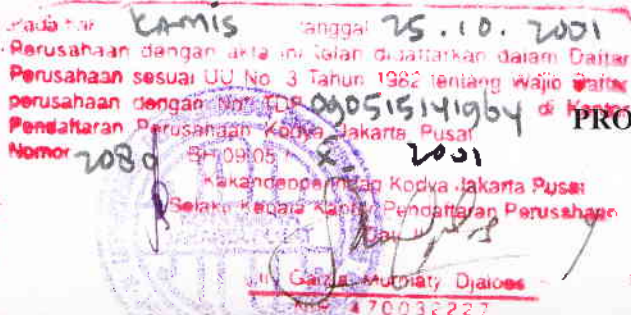 Pada hari KAMIS tanggal 25.10.2001
Perusahaan dengan akta ini telah didaftarkan dalam Daftar
Perusahaan sesuai UU No. 3 Tahun 1982 tentang Wajib Daftar
perusahaan dengan No. TDP 090515141964 di Kantor
Pendaftaran Perusahaan Kodya Jakarta Pusat
PRO
Nomor 2080 BH 09.05 X 2001
Kakandepperindag Kodya Jakarta Pusat
Selaku Kepala Kantor Pendaftaran Perusahaan
Djaloes
470032227